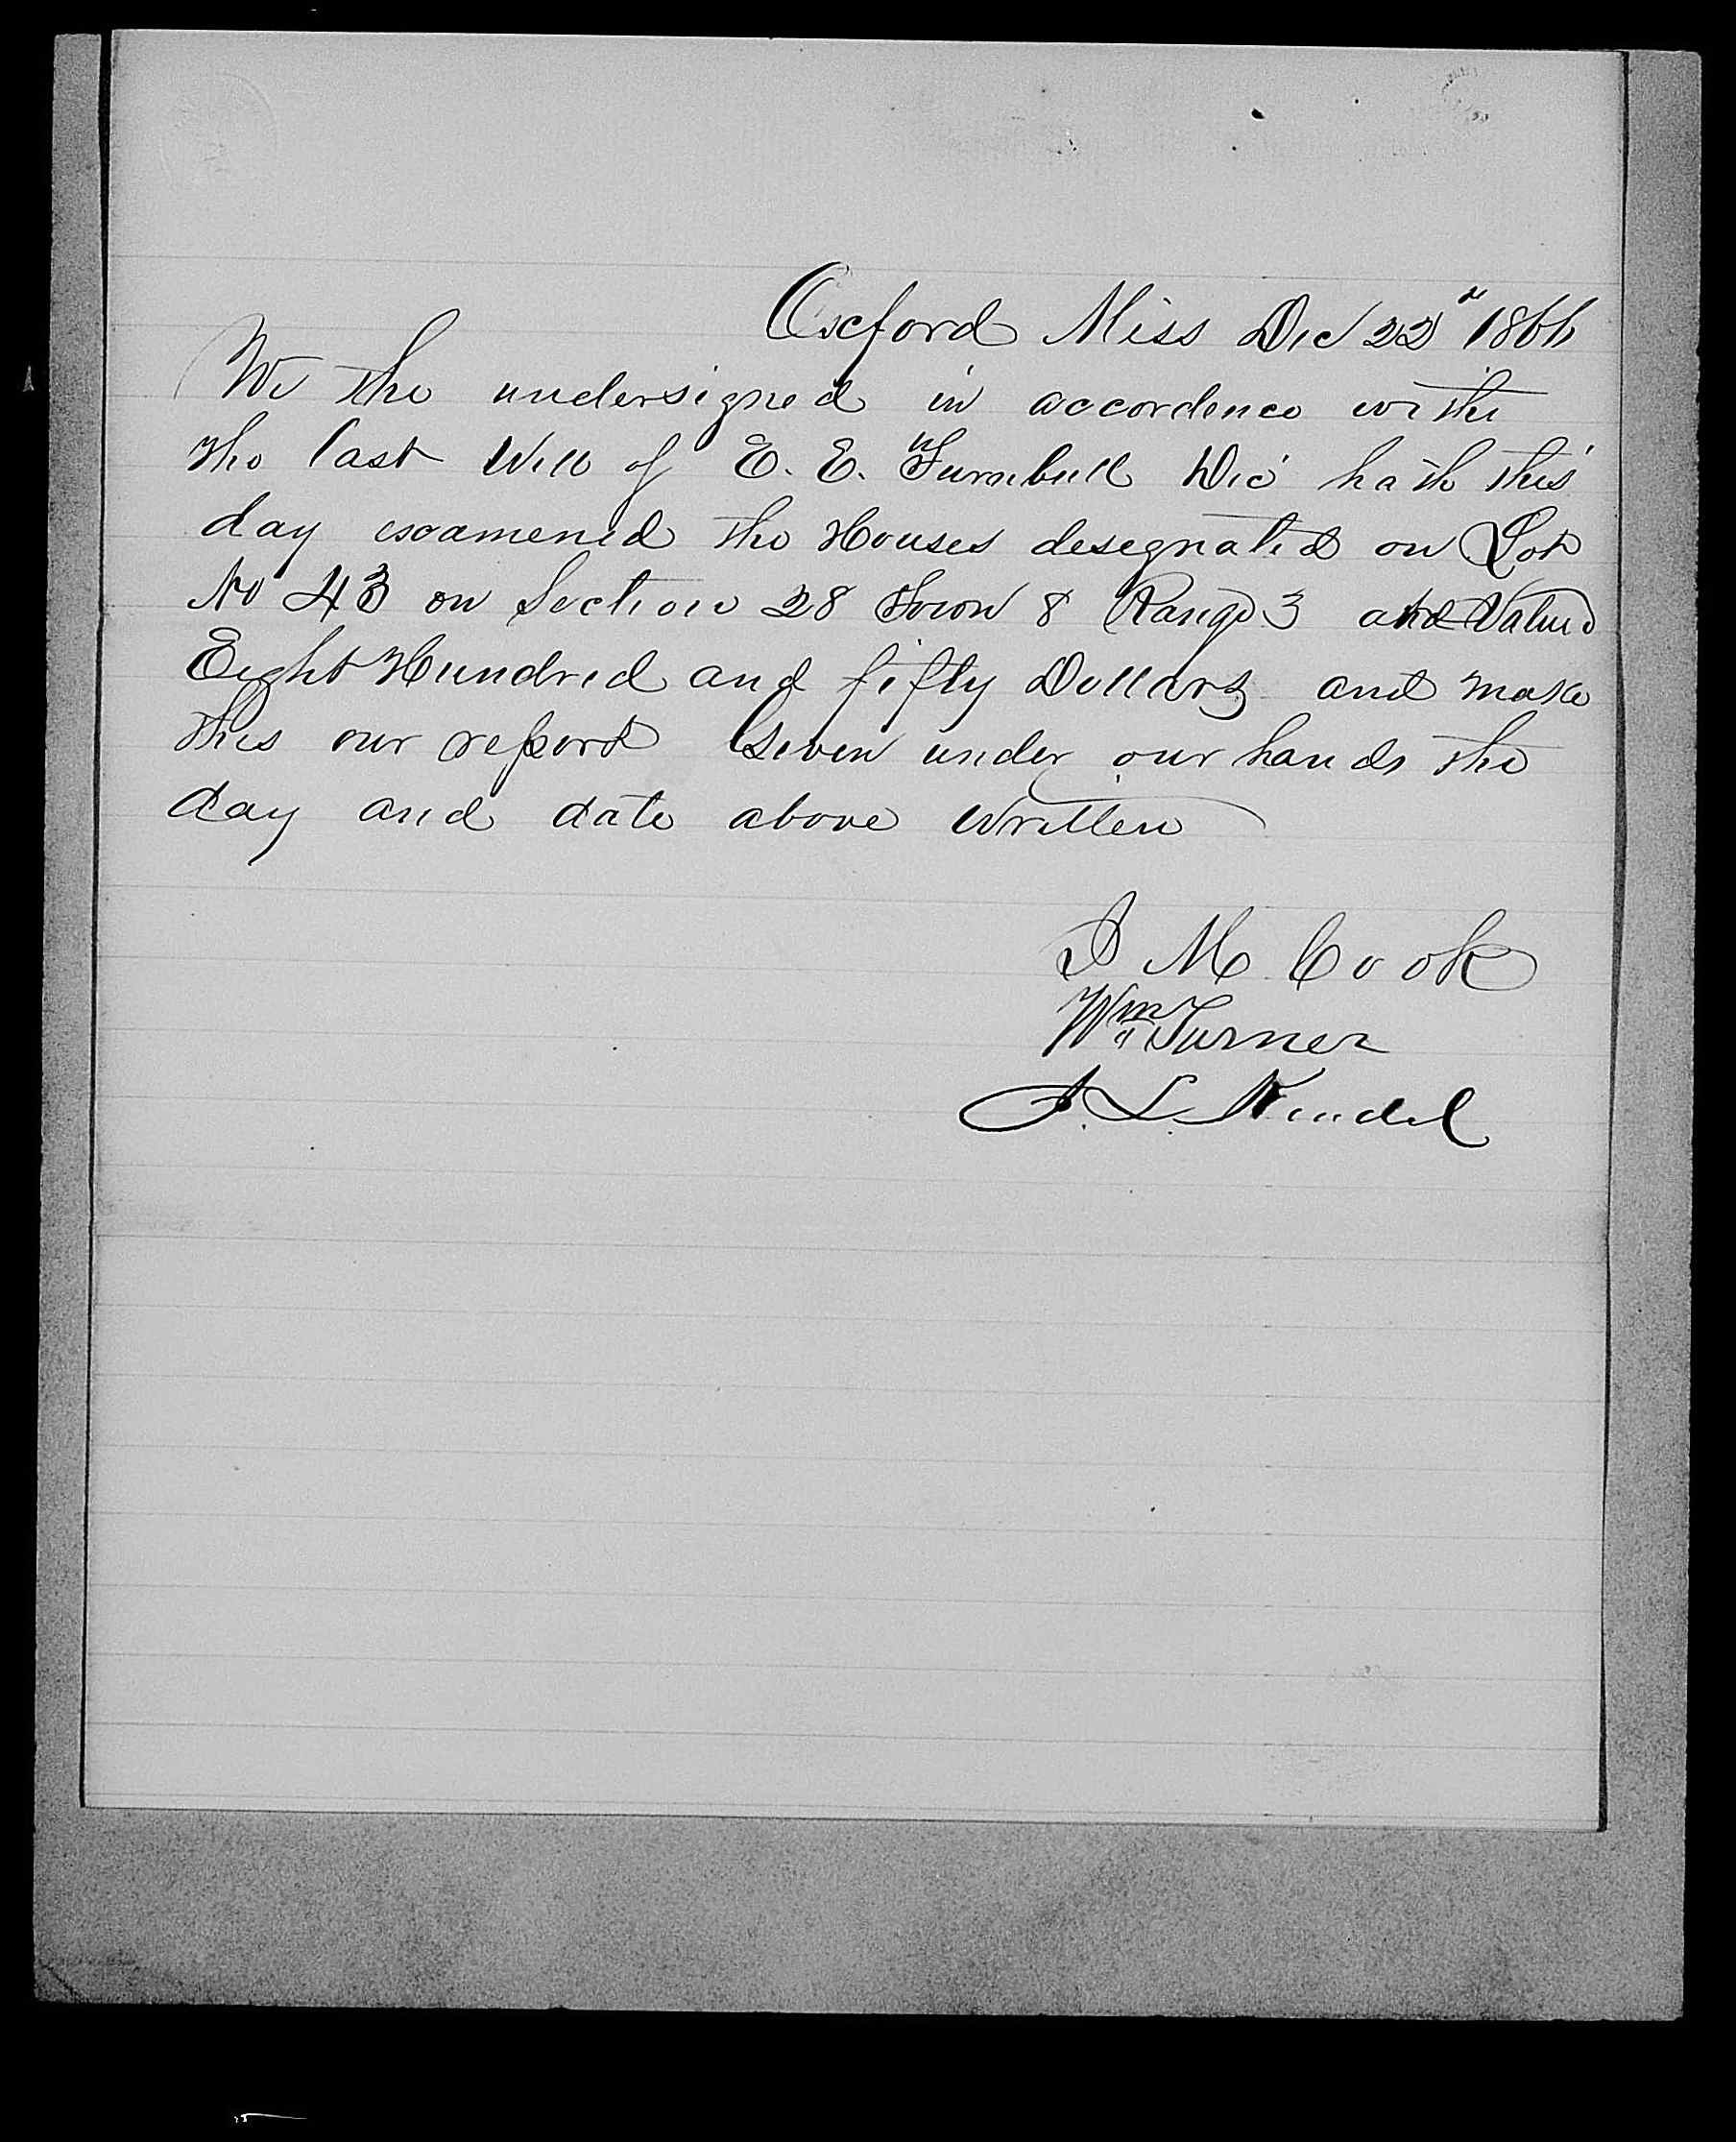 Oxford Miss Dec 22d 1866
We the undersigned in accordence with
the last Will of E. E. Turnbull Dec hath this
day examened the Houses designated on Lot
No 43 on Section 28 Town 8 Range 3 and Valued
Eight Hundred and fifty Dollars and make
this our report Given under our hands the
day and date above written
M Cook
Wm Turner